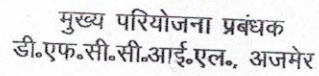 मुख्य परियोजना प्रबंधक
डी॰एफ॰सी॰सी॰आई॰एल॰, अजमेर